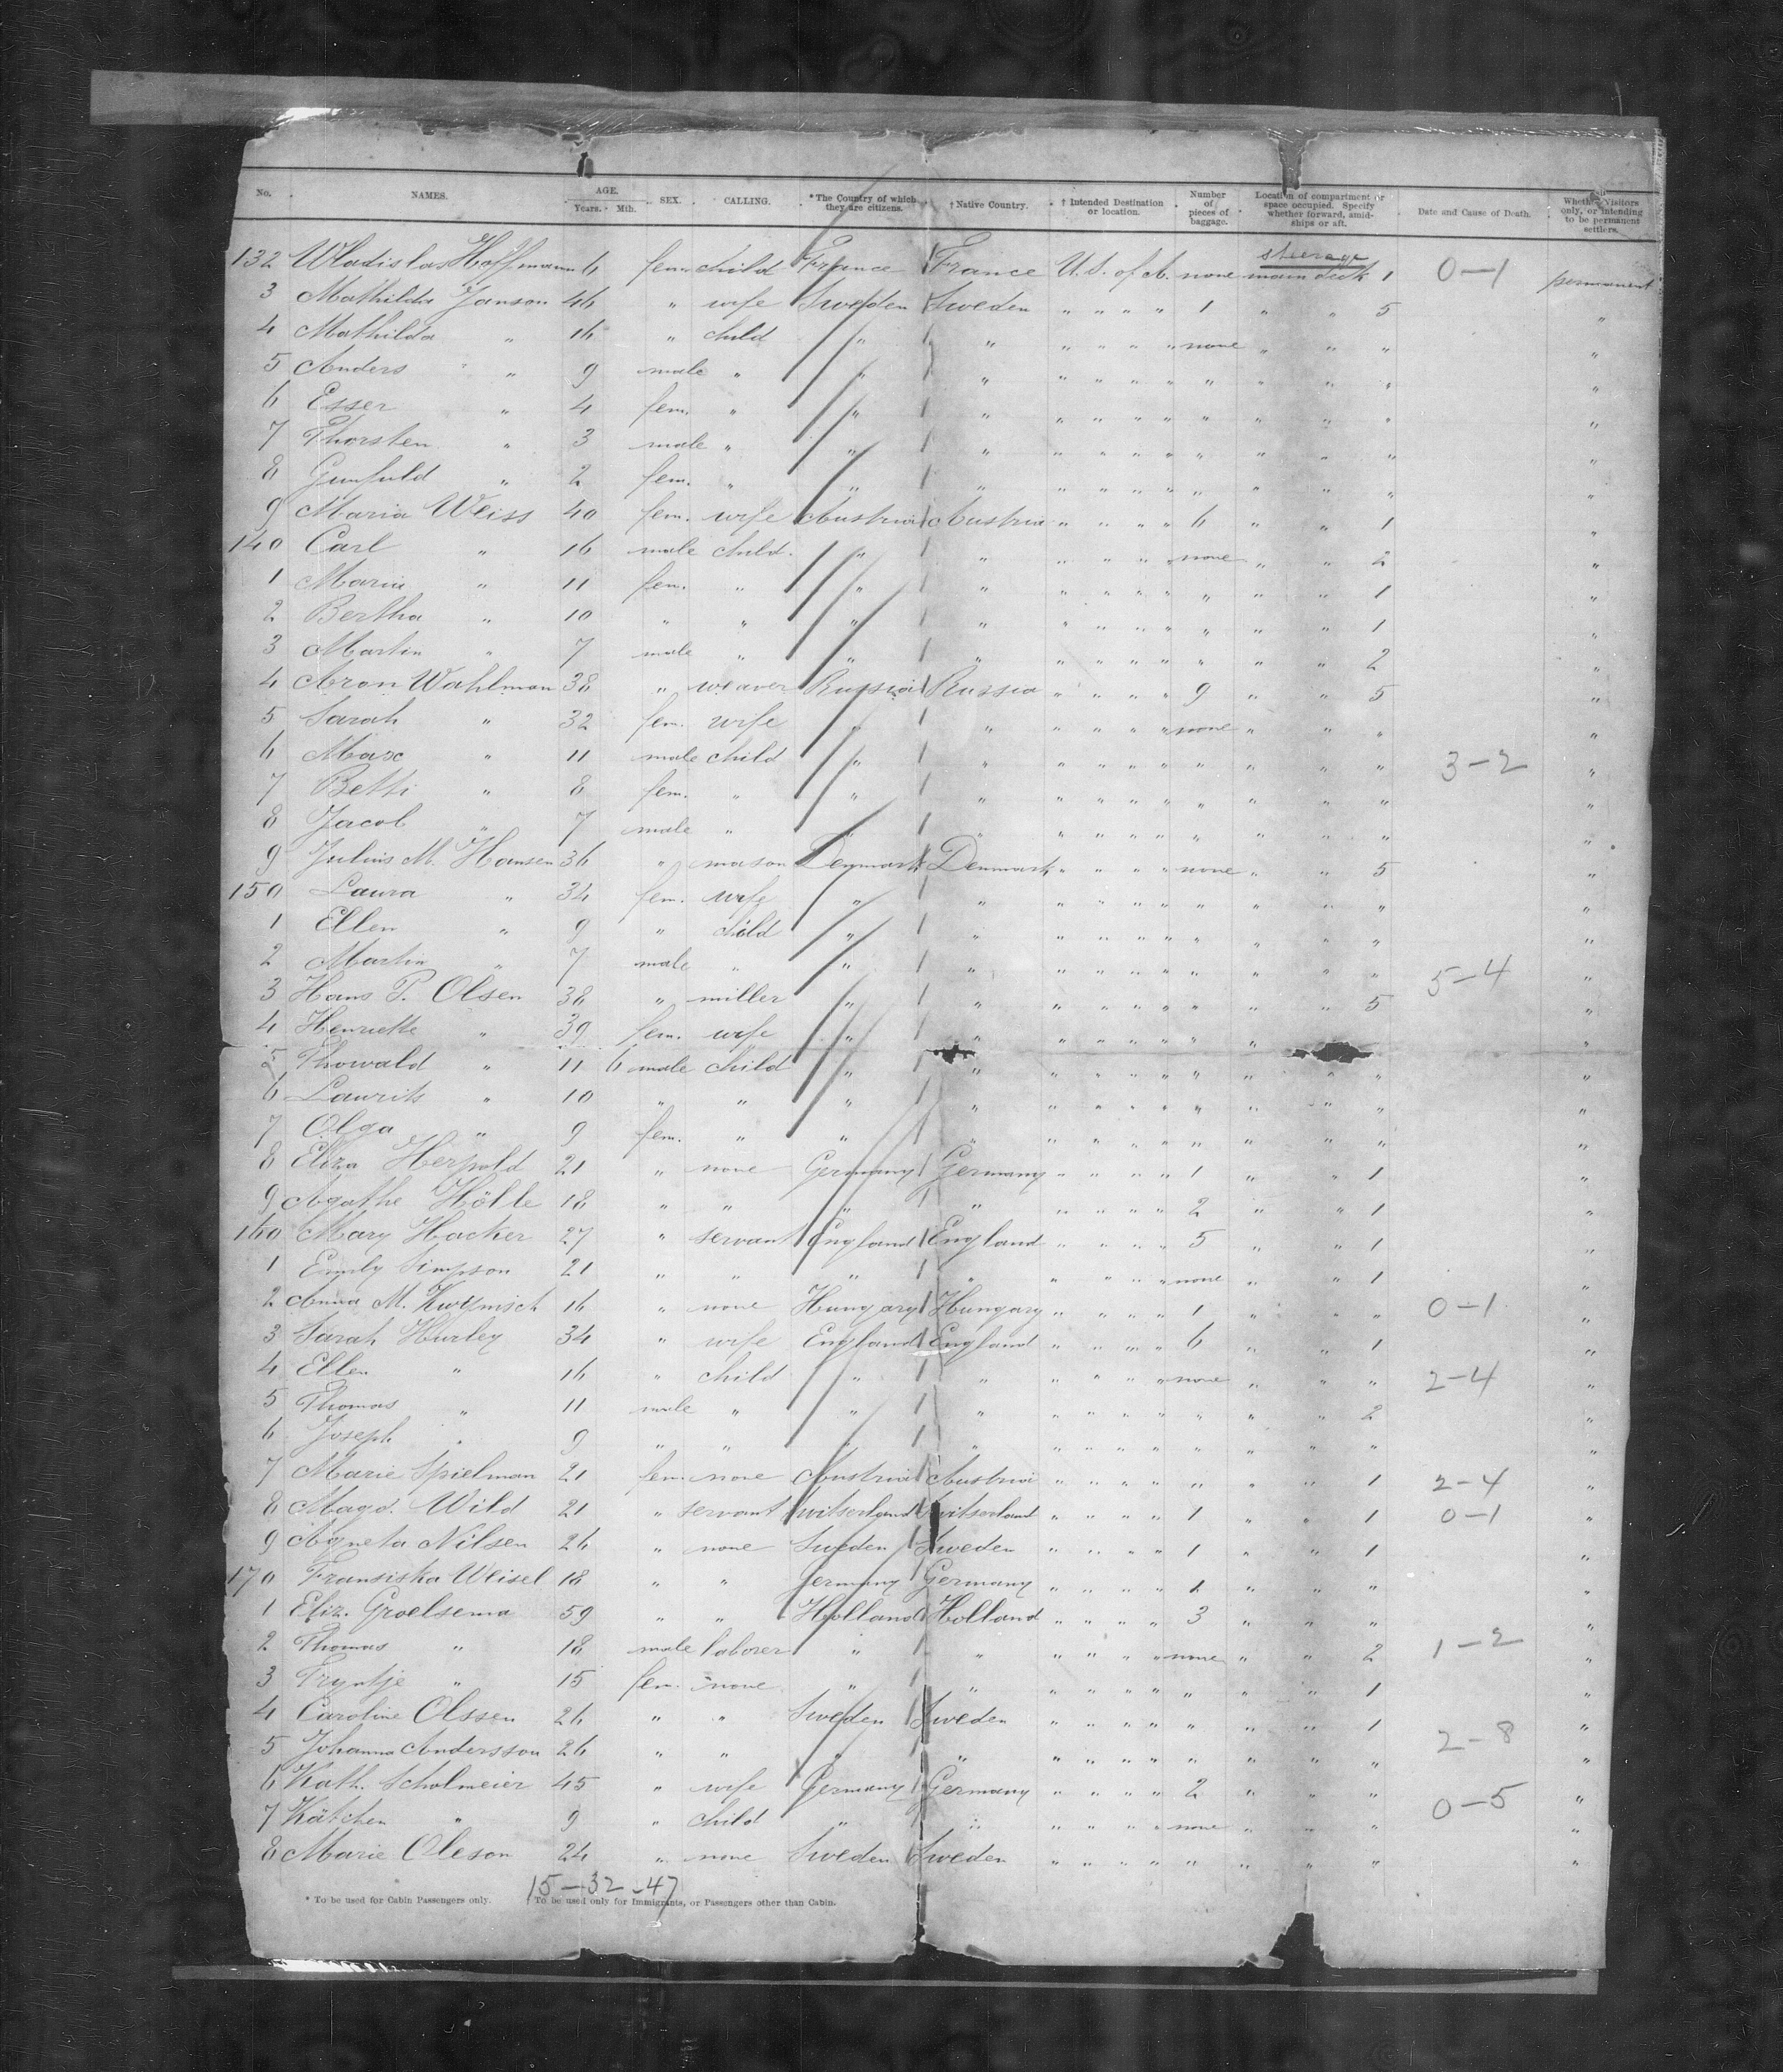 No. NAMES. AGE. Years. Mth. SEX. CALLING. *The Country of which they are citizens. †Native Country. †Intended Destination or location. Number of pieces of baggage. Location of compartment or space occupied. Specify whether forward, amidships or aft. Date and Cause of Death. Whether Visitors only, or intending to be permanent settlers.
steerage
132 Wladislas Hoffmann 6 fem child France France U.S. of A. none main deck 1 0-1 permanent
3 Mathilda Janson 46 " wife Sweden Sweden " " " " 1 " " 5 "
4 Mathilda " 16 " child " " " " " " none " " " "
5 Anders " 9 male " " " " " " " " " " " "
6 Esser " 4 fem. " " " " " " " " " " " "
7 Thorsten " 3 male " " " " " " " " " " " "
8 " 2 fem. " " " " " " " " " " " "
9 Maria Weiss 40 fem. wife Austria Austria " " " " 6 " " 1 "
140 Carl " 16 male child. " " " " " " none " " 2 "
1 Maria " 11 fem. " " " " " " " " " " 1 "
2 Bertha " 10 " " " " " " " " " " " 1 "
3 Martin " 7 male " " " " " " " " " " 2 "
4 Aron Wahlman 38 " weaver Russia Russia " " " " 9 " " 5 "
5 Sarah " 32 fem. wife " " " " " " none " " " "
6 Max " 11 male child " " " " " " " " " " 3-2 "
7 Betti " 8 fem. " " " " " " " " " " " "
8 Jacob " 7 male " " " " " " " " " " " "
9 Julius M. Hansen 36 " mason Denmark Denmark " " " " none " " 5 "
150 Laura " 34 fem. wife " " " " " " " " " " "
1 Ellen " 9 " child " " " " " " " " " " "
2 Martin " 7 male " " " " " " " " " " " "
3 Hans P. Olsen 38 " miller " " " " " " " " " 5 5-4 "
4 Henriette " 39 fem. wife " " " " " " " " "
5 Thowald " 11 6 male child " " " " " " " " " " "
6 Laurits " 10 " " " " " " " " " " " " "
7 Olga " 9 fem. " " " " " " " " " " " "
8 Eliza Herpold 21 " none Germany Germany " " " " 1 " " 1 "
9 Agathe Hölle 18 " " " " " " " " 2 " " 1 "
160 Mary Hacker 27 " servant England England " " " " 5 " " 1 "
1 Emily Simpson 21 " " " " " " " " none " " 1 "
2 Anna M. 16 " none Hungary Hungary " " " " 1 " " " 0-1 "
3 Sarah Hurley 34 " wife England England " " " " 6 " " 1 "
4 Ellen " 16 " child " " " " " " none " " " 2-4 "
5 Thomas " 11 male " " " " " " " " " " 2 "
6 Joseph " 9 " " " " " " " " " " " " "
7 Marie Spielman 21 fem. none Austria Austria " " " " " " " 1 2-4 "
8 Magd. Wild 21 " servant Switserland Switserland " " " " 1 " " 1 0-1 "
9 Agneta Nilsen 26 " none Sweden Sweden " " " " 1 " " 1 "
170 Fransiska Weisel 18 " " Germany Germany " " " " 1 " " " "
1 Eliz. Groelsema 59 " " Holland Holland " " " " 3 " " " "
2 Thomas " 18 male laborer " " " " " " none " " 2 1-2 "
3 Tryntje " 15 fem. none " " " " " " " " " 1 "
4 Caroline Olssen 26 " " Sweden Sweden " " " " " " " 1 "
5 Johanna Andersson 26 " " " " " " " " " " " " 2-8 "
6 Kath. Scholmeier 45 " wife Germany Germany " " " " 2 " " " "
7 Kätchen " 9 " child " " " " " " none " " " 0-5 "
8 Marie Oleson 24 " none Sweden Sweden " " " " " " " " "
15-32-47
* To be used for Cabin Passengers only. † To be used only for Immigrants, or Passengers other than Cabin.